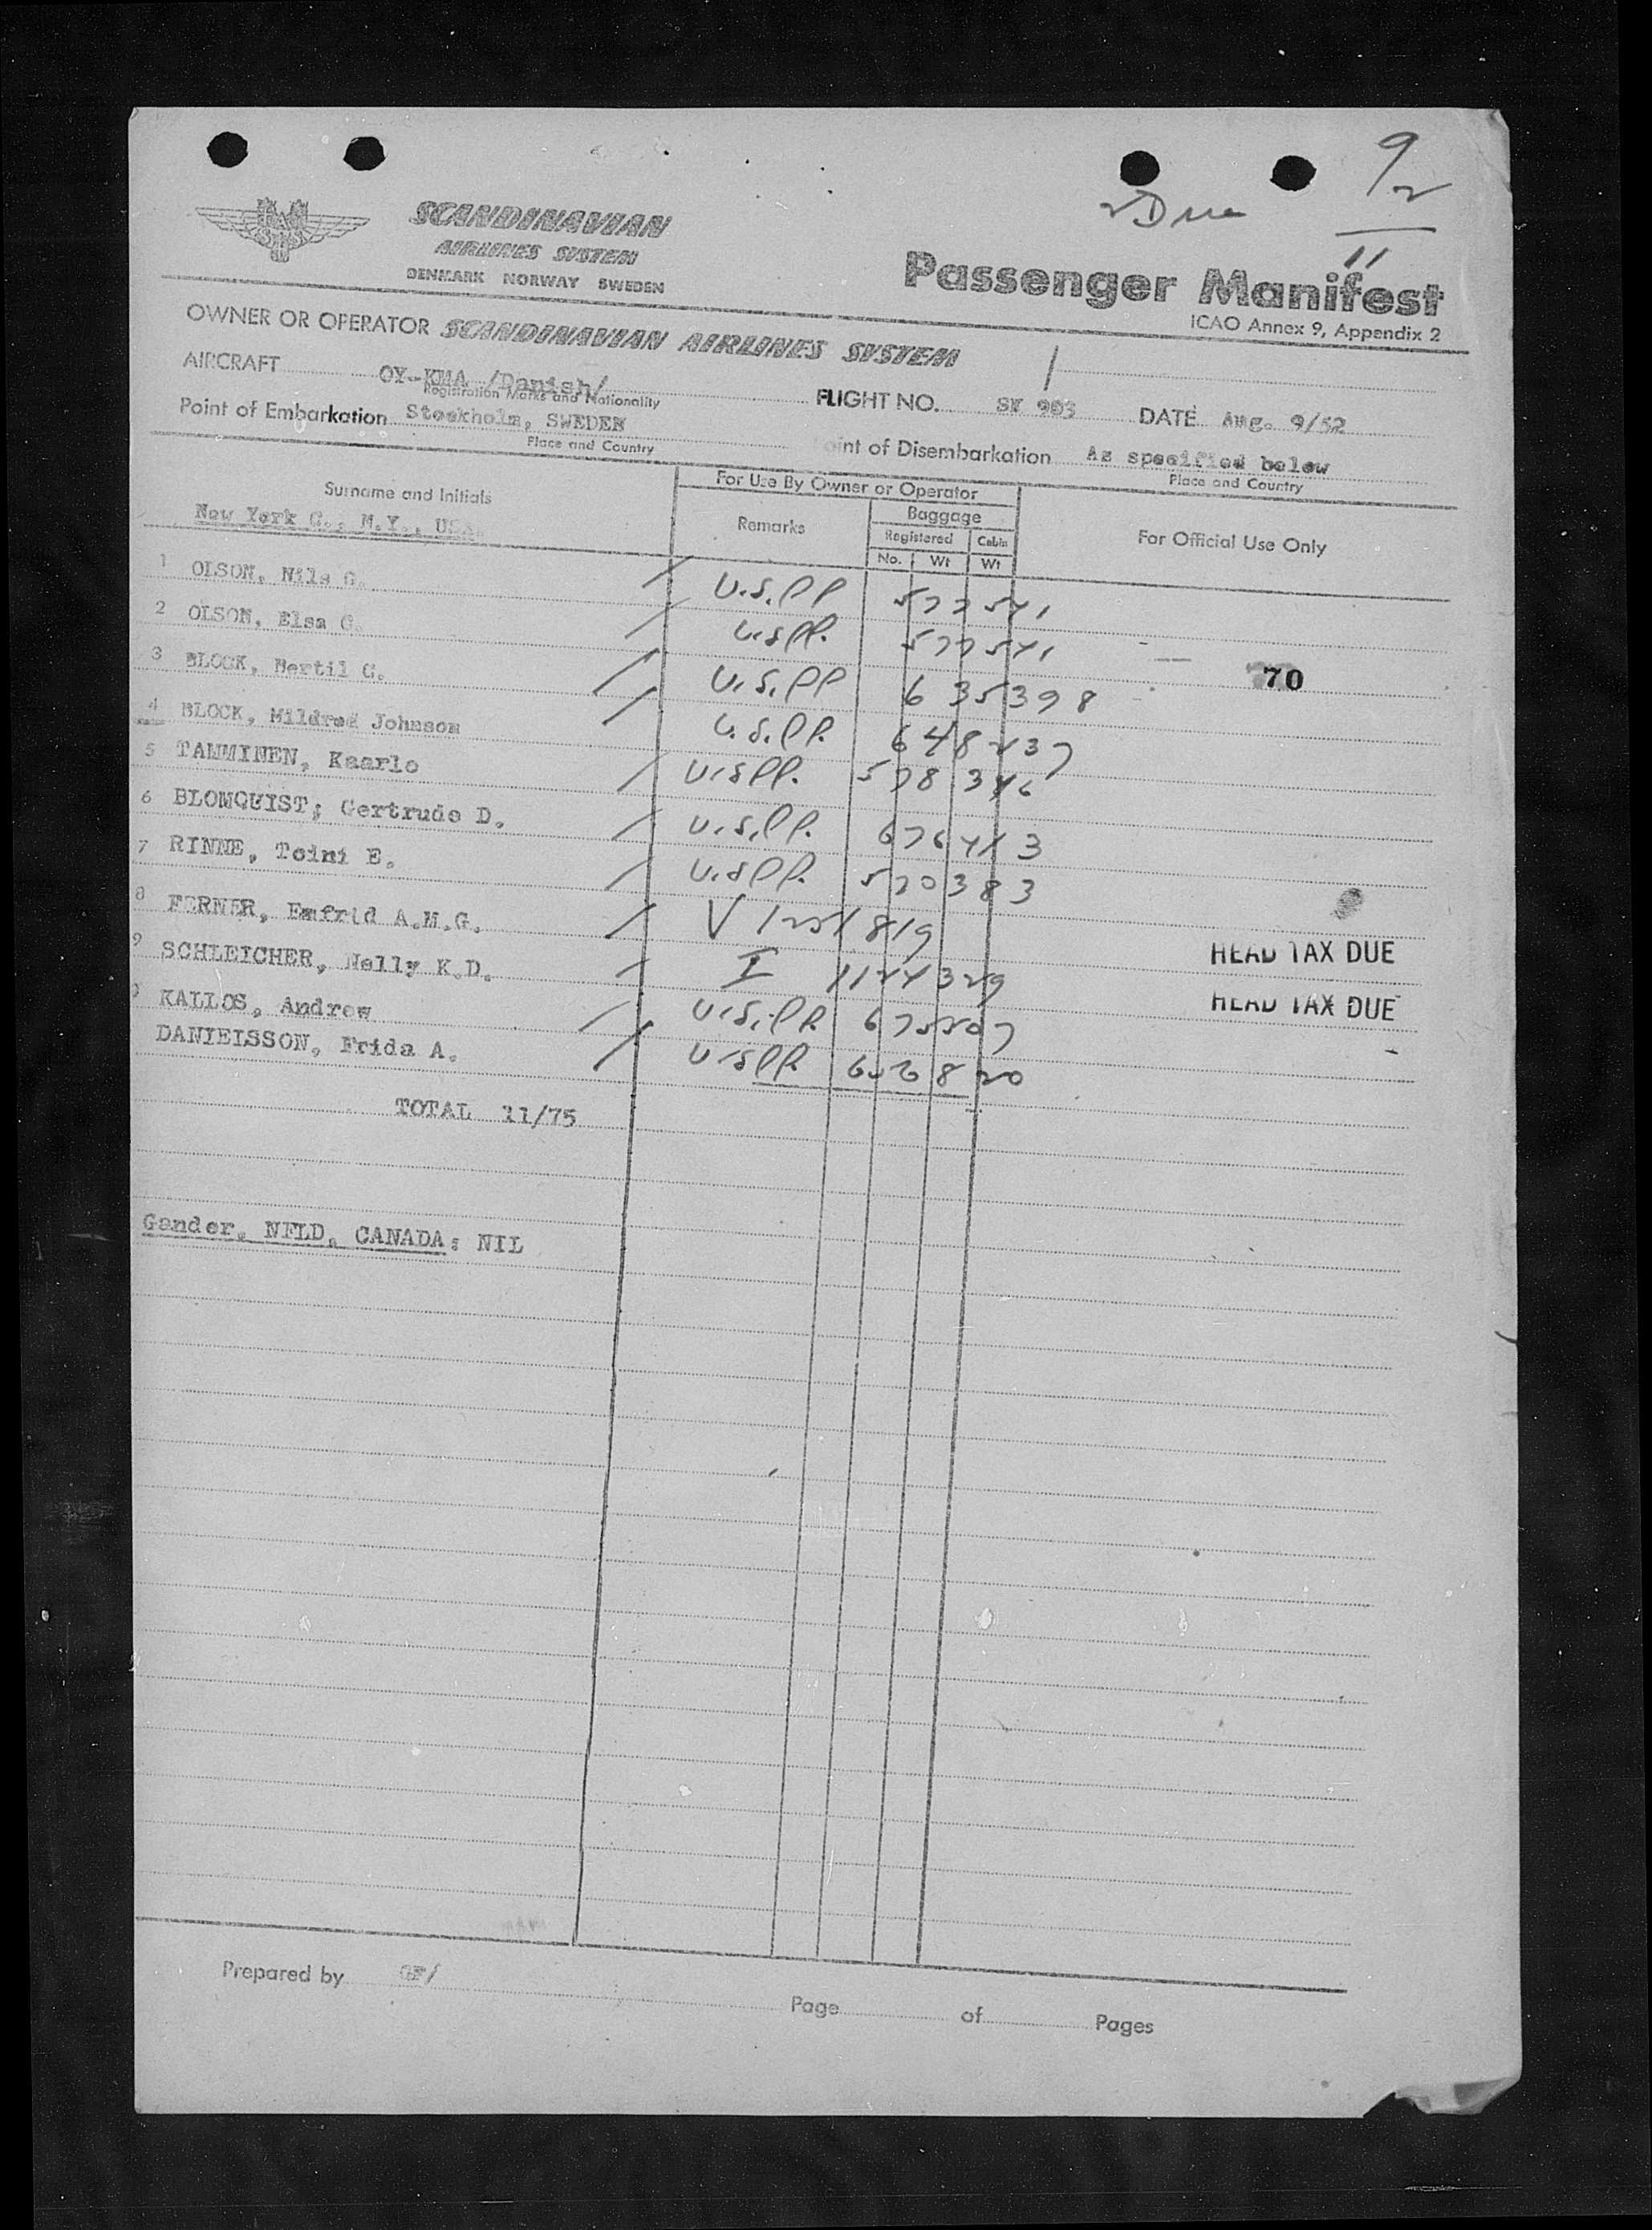 9
2
2 Due
11
SCANDINAVIAN
AIRLINES SYSTEM
DENMARK NORWAY SWEDEN
Passenger Manifest
ICAO Annex 9, Appendix 2
OWNER OR OPERATOR SCANDINAVIAN AIRLINES SYSTEM
AIRCRAFT OY-KMA /Danish/ FLIGHT NO. SK 903 DATE Aug. 9/52
Registration Marks and Nationality
Point of Embarkation Stockholm, SWEDEN oint of Disembarkation As specified below
Place and Country Place and Country
Surname and Initials For Use By Owner or Operator For Official Use Only
Remarks Baggage
Registered Cabin
No. Wt Wt
New York C., N.Y., USA
1 OLSON, Nils G. U.S.PP 577541
2 OLSON, Elsa G. U.S PP. 577541
3 BLOCK, Bertil G. U.S.PP 635398 70
4 BLOCK, Mildred Johnson U.S.PP. 648237
5 TAMMINEN, Kaarlo U.S PP. 578346
6 BLOMQUIST, Gertrude D. U.S.PP. 676413
7 RINNE, Toini E. U.S PP. 570383
8 FERNER, Emfrid A.M.G. V 1251819 HEAD TAX DUE
9 SCHLEICHER, Nelly K.D. I 1124329 HEAD TAX DUE
KALLOS, Andrew U.S.PP.
DANIELSSON, Frida A. U.S PP. 626820
TOTAL 11/75
Gander, NFLD, CANADA: NIL
Prepared by
Page of Pages